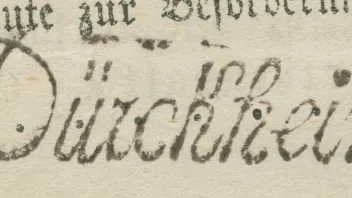 zur Beförderun
Dürckhei